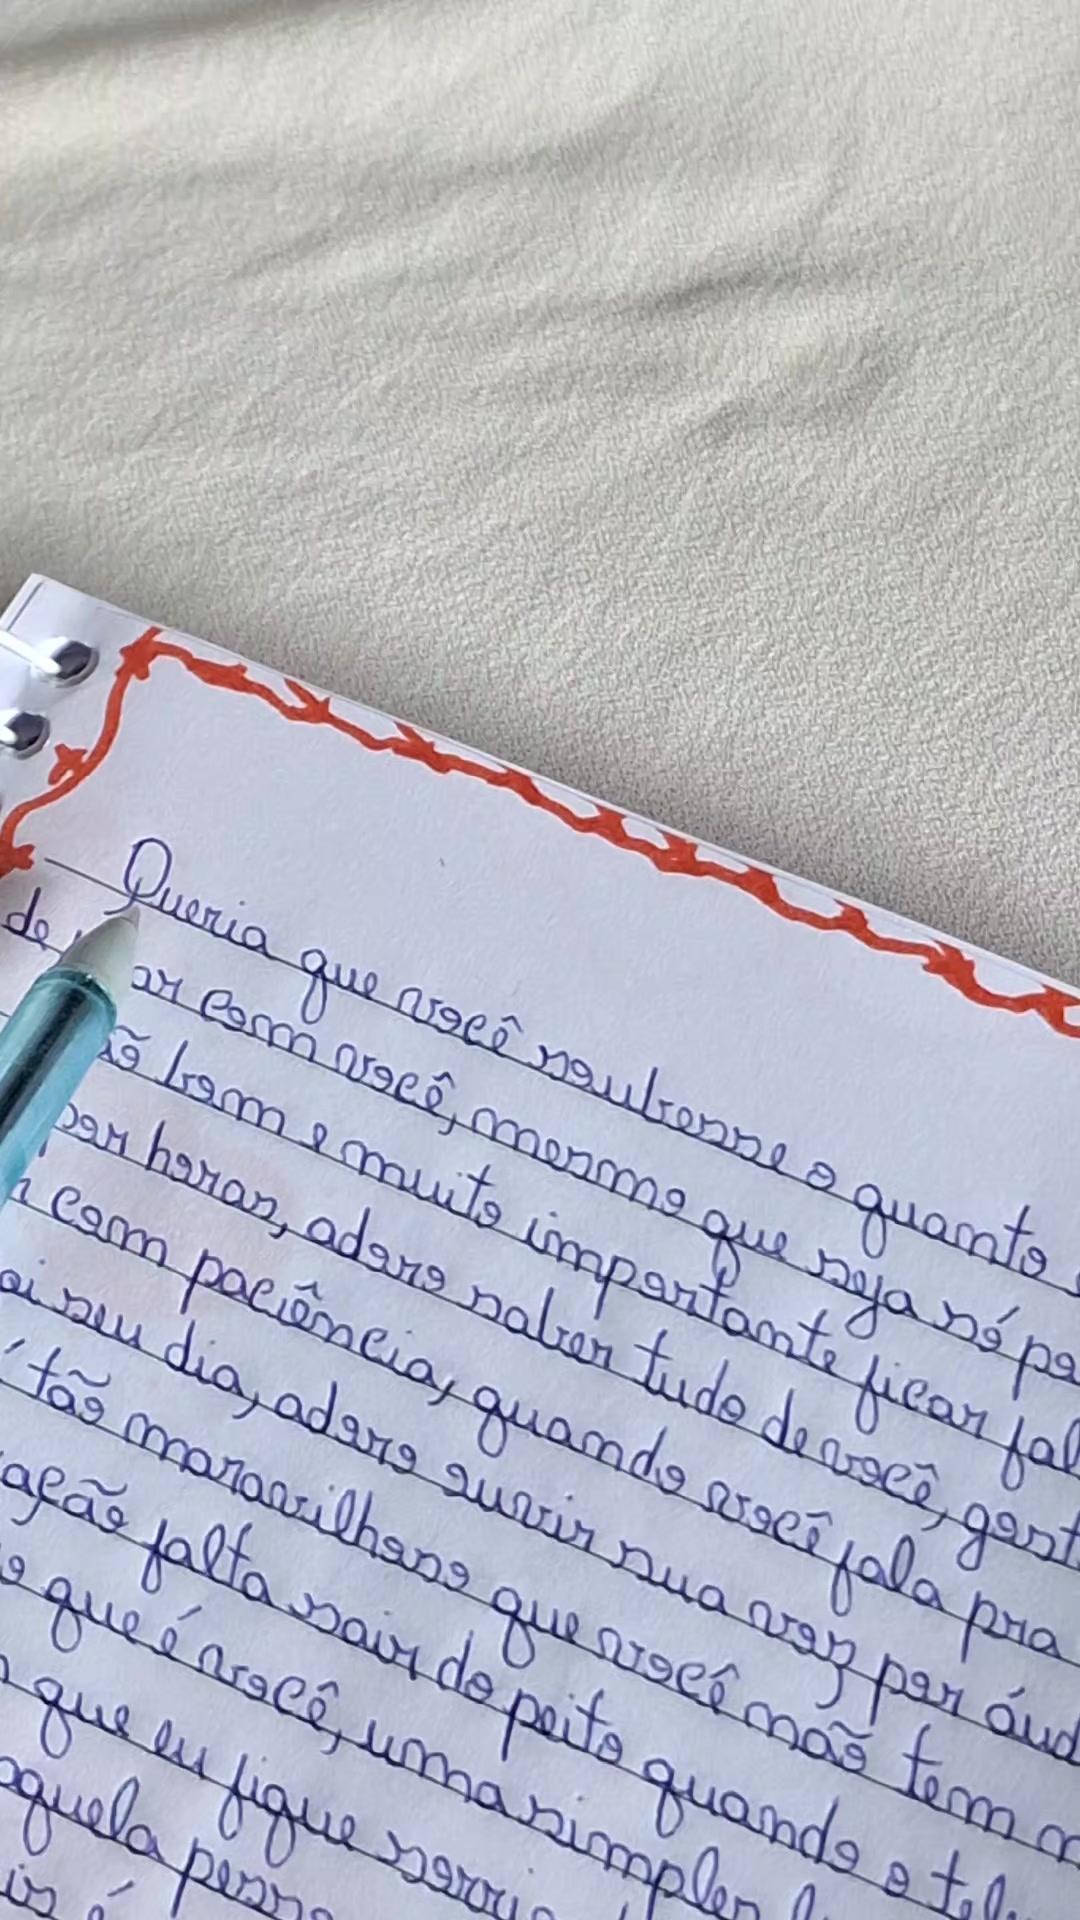 Queria que você soubesse o quanto
de com você, mesmo que seja só
bem e muito importante ficar
por horas, adoro saber tudo de você,
com paciência, quando você fala pra
seu dia, adoro ouvir sua voz por
tão maravilhoso que você não tem
falta sair do peito quando o
que é você, uma simples
que eu fique
aquela
é